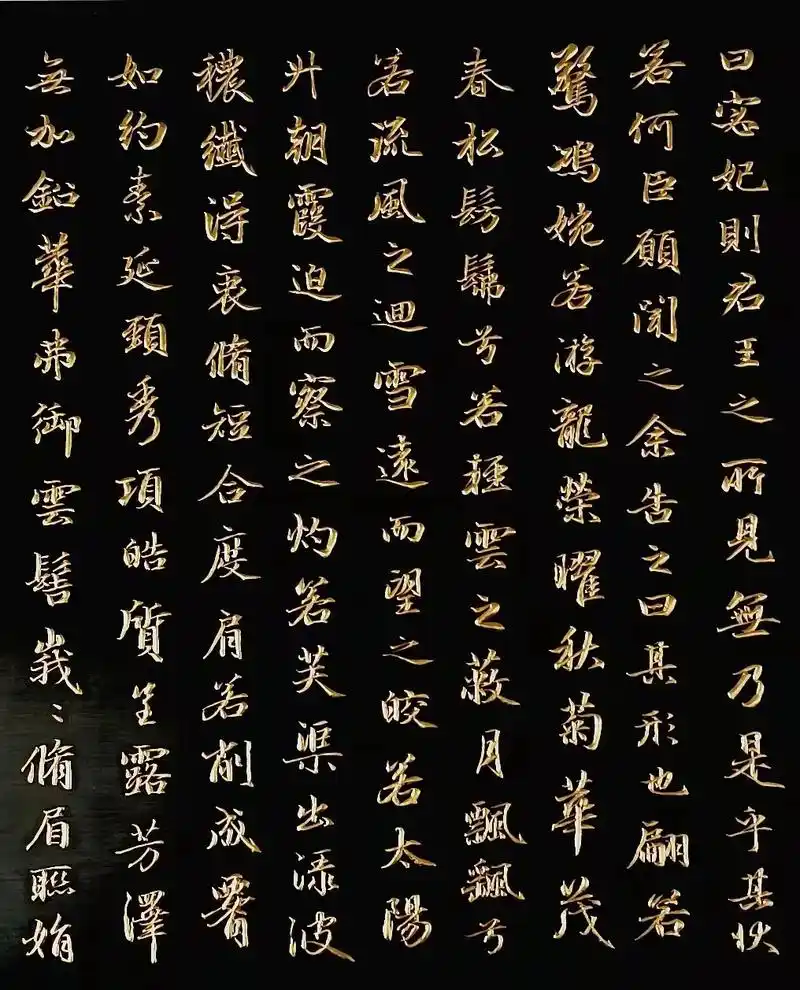 曰宓妃則君王之所見無乃是乎其狀
若何臣願聞之余告之曰其形也翩若
驚鴻婉若游龍榮曜秋菊華茂
春松髣髴兮若輕雲之蔽月飄飄兮
若流風之迴雪遠而望之皎若太陽
升朝霞迫而察之灼若芙渠出淥波
穠纖得衷脩短合度肩若削成腰
如約素延頸秀項皓質呈露芳澤
無加鉛華弗御雲髻峩〻脩眉聯娟